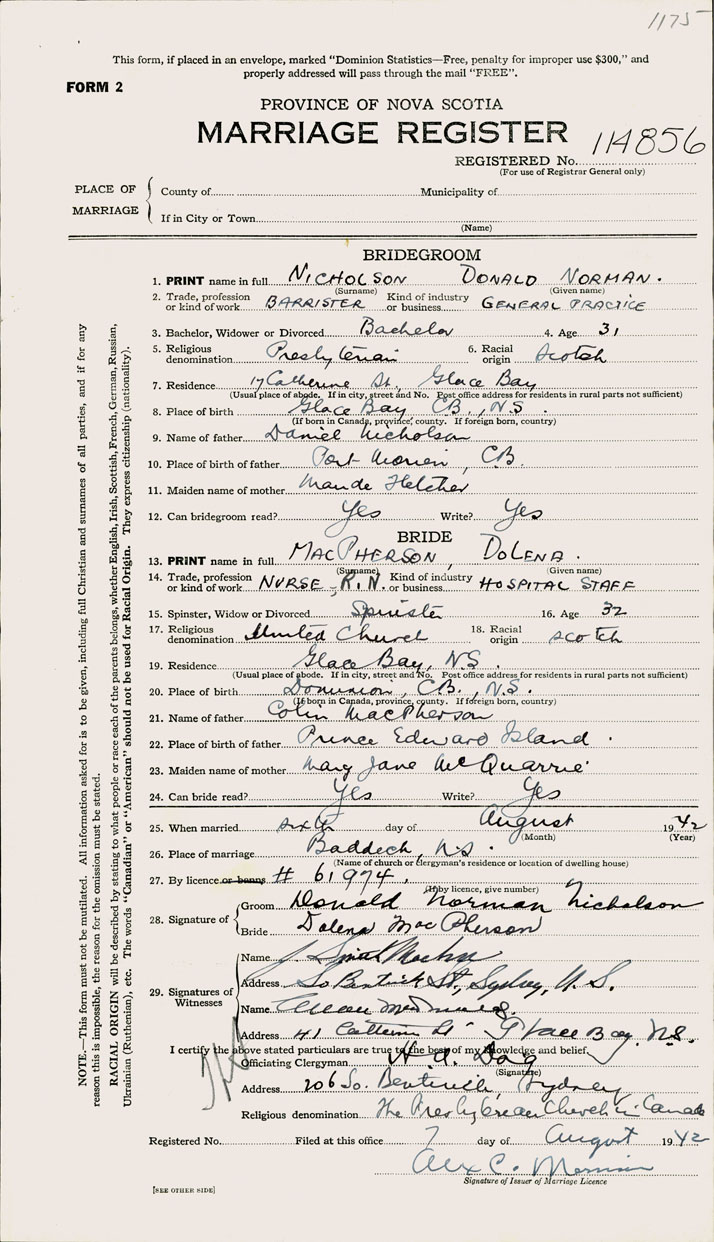 1175
This form, if placed in an envelope, marked "Dominion Statistics—Free, penalty for improper use $300," and
properly addressed will pass through the mail "FREE".
FORM 2
PROVINCE OF NOVA SCOTIA
MARRIAGE REGISTER
REGISTERED No. 114856
(For use of Registrar General only)
PLACE OF MARRIAGE
County of Municipality of
If in City or Town
(Name)
BRIDEGROOM
1. PRINT name in full NICHOLSON DONALD NORMAN.
(Surname) (Given name)
2. Trade, profession or kind of work BARRISTER Kind of industry or business GENERAL PRACTICE
3. Bachelor, Widower or Divorced Bachelor 4. Age 31
5. Religious denomination Presbyterian 6. Racial origin Scotch
7. Residence 17 Catherine St., Glace Bay
(Usual place of abode. If in city, street and No. Post office address for residents in rural parts not sufficient)
8. Place of birth Glace Bay C.B., N.S.
(If born in Canada, province, county. If foreign born, country)
9. Name of father Daniel Nicholson
10. Place of birth of father Port Morien, C.B.
11. Maiden name of mother Maude Fletcher
12. Can bridegroom read? Yes Write? Yes
BRIDE
13. PRINT name in full MACPHERSON, DOLENA.
(Surname) (Given name)
14. Trade, profession or kind of work NURSE, R.N. Kind of industry or business HOSPITAL STAFF
15. Spinster, Widow or Divorced Spinster 16. Age 32
17. Religious denomination United Church 18. Racial origin Scotch
19. Residence Glace Bay, N.S.
(Usual place of abode. If in city, street and No. Post office address for residents in rural parts not sufficient)
20. Place of birth Dominion, C.B., N.S.
(If born in Canada, province, county. If foreign born, country)
21. Name of father Colin MacPherson
22. Place of birth of father Prince Edward Island.
23. Maiden name of mother Mary Jane McQuarrie
24. Can bride read? Yes Write? Yes
25. When married sixth day of August 1942
(Month) (Year)
26. Place of marriage Baddeck, N.S.
(Name of church or clergyman's residence or location of dwelling house)
27. By licence or banns # 61974
(If by licence, give number)
28. Signature of
Groom Donald Norman Nicholson
Bride Dolena MacPherson
29. Signatures of Witnesses
Name
Address So Bentinck St., Sydney, N.S.
Name
Address 41 Catherine St Glace Bay. N.S.
I certify the above stated particulars are true to the best of my knowledge and belief.
Officiating Clergyman
(Signature)
Address 206 So. Bentinck, Sydney
Religious denomination The Presbyterian Church in Canada
Registered No. Filed at this office 7 day of August 1942
Alex C.
Signature of Issuer of Marriage Licence
[SEE OTHER SIDE]
NOTE.—This form must not be mutilated. All information asked for is to be given, including full Christian and surnames of all parties, and if for any
reason this is impossible, the reason for the omission must be stated.
RACIAL ORIGIN will be described by stating to what people or race each of the parents belongs, whether English, Irish, Scottish, French, German, Russian,
Ukrainian (Ruthenian), etc. The words "Canadian" or "American" should not be used for Racial Origin. They express citizenship (nationality).